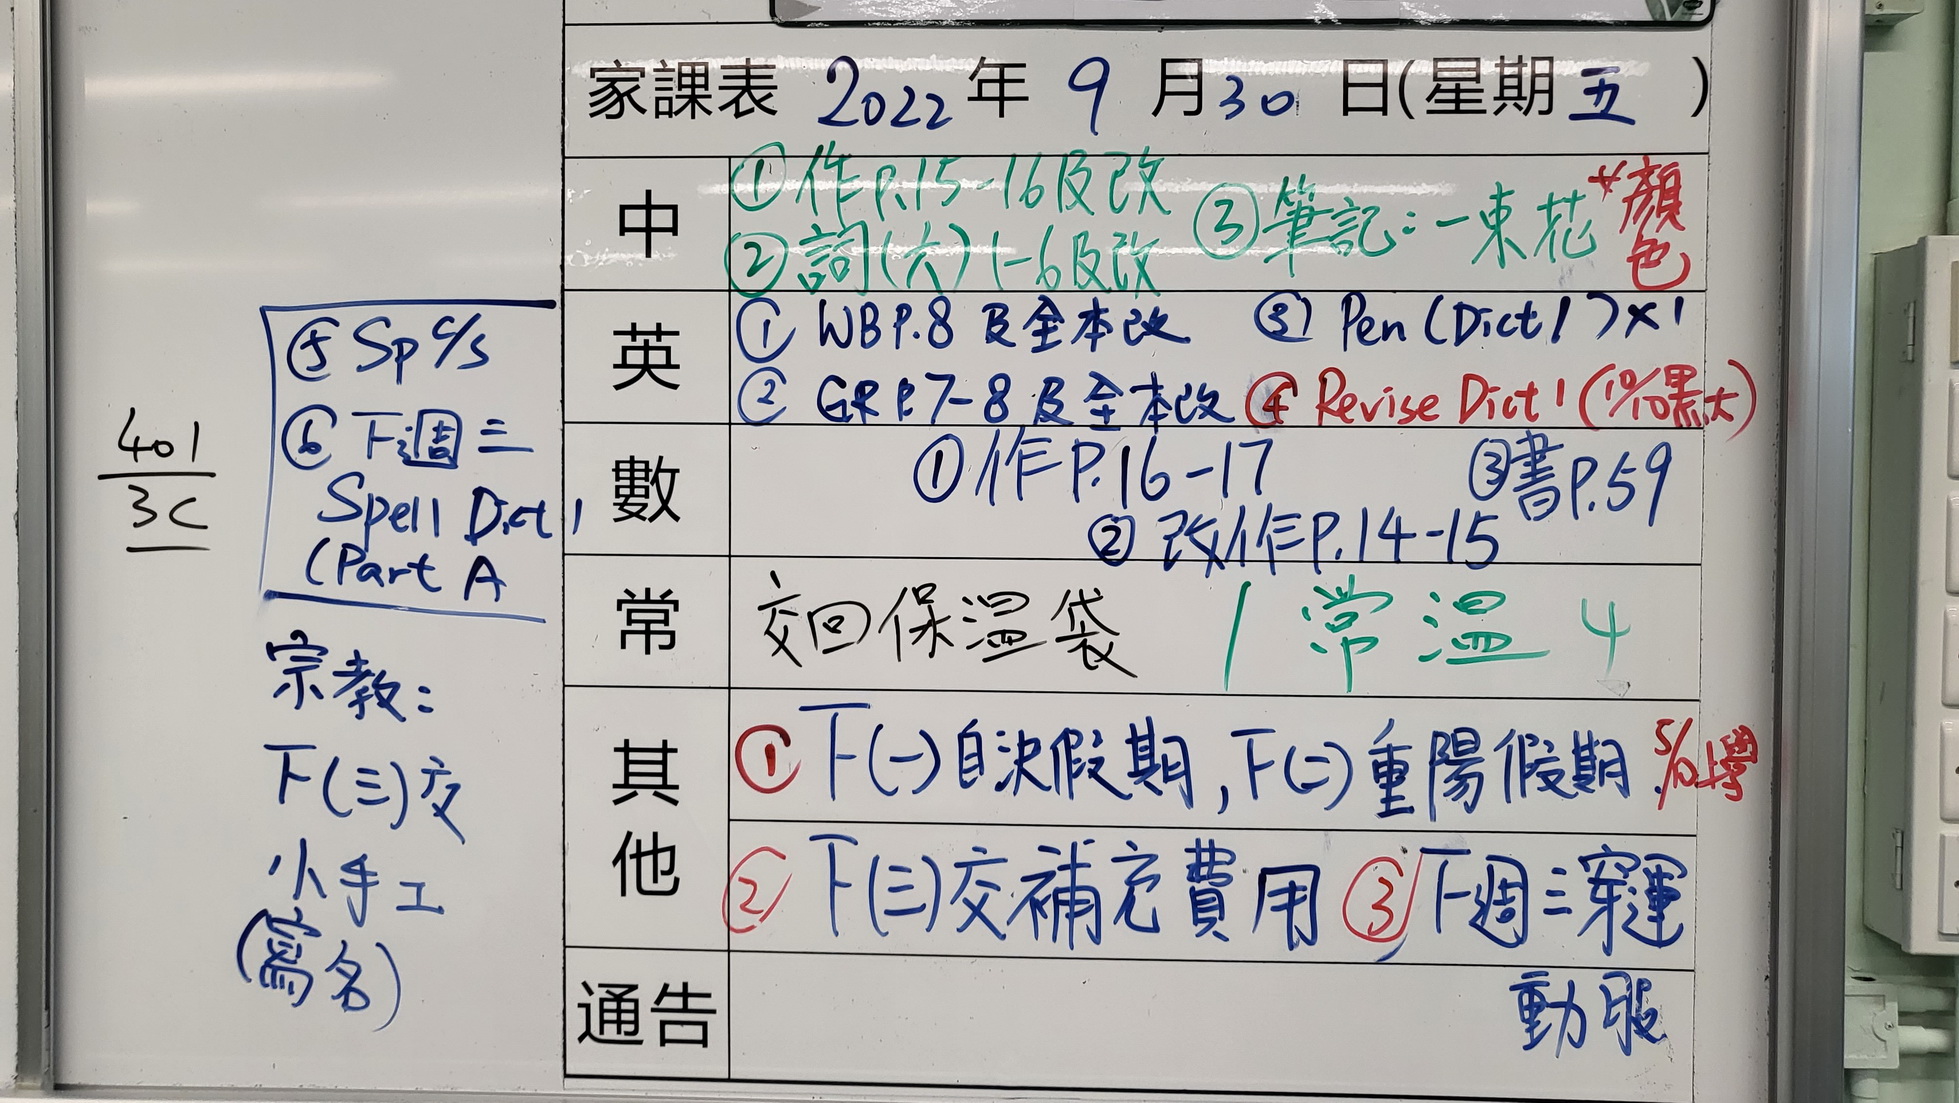 家課表 2022 年 9 月 30 日(星期 五 )
中
① 作P.15-16及改
② 詞(六) 1-6及改
③ 筆記：一束花 *顏色
英
① WB P.8 及全本改 ③ Pen (Dict 1) x 1
② GR P.7-8 及全本改 ④ Revise Dict 1 (10/10黑大)
⑤ Sp c/s
⑥ 下週三
Spell Dict 1
(Part A
數
① 作P.16-17 ③ 書P.59
② 改作P.14-15
常
交回保溫袋 / 常溫 4
其他
① 下(一)自決假期, 下(二)重陽假期. 5/10上學
② 下(三)交補充費用 ③ 下週三穿運
動服
通告
401
3C
宗教:
下(三)交
小手工
(寫名)